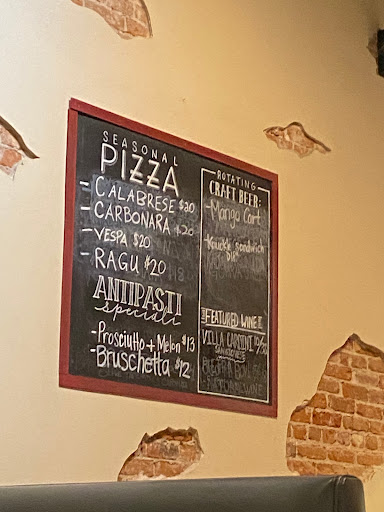 SEASONAL
PIZZA
- CALABRESE $20
- CARBONARA $20
- VESPA $20
- RAGU $20
ANTIPASTI
speciali
- Prosciutto + Melon $13
- Bruschetta $12
ROTATING
CRAFT BEER:
- Mango Cart
- Knuckle Sandwich
FEATURED WINE
VILLA